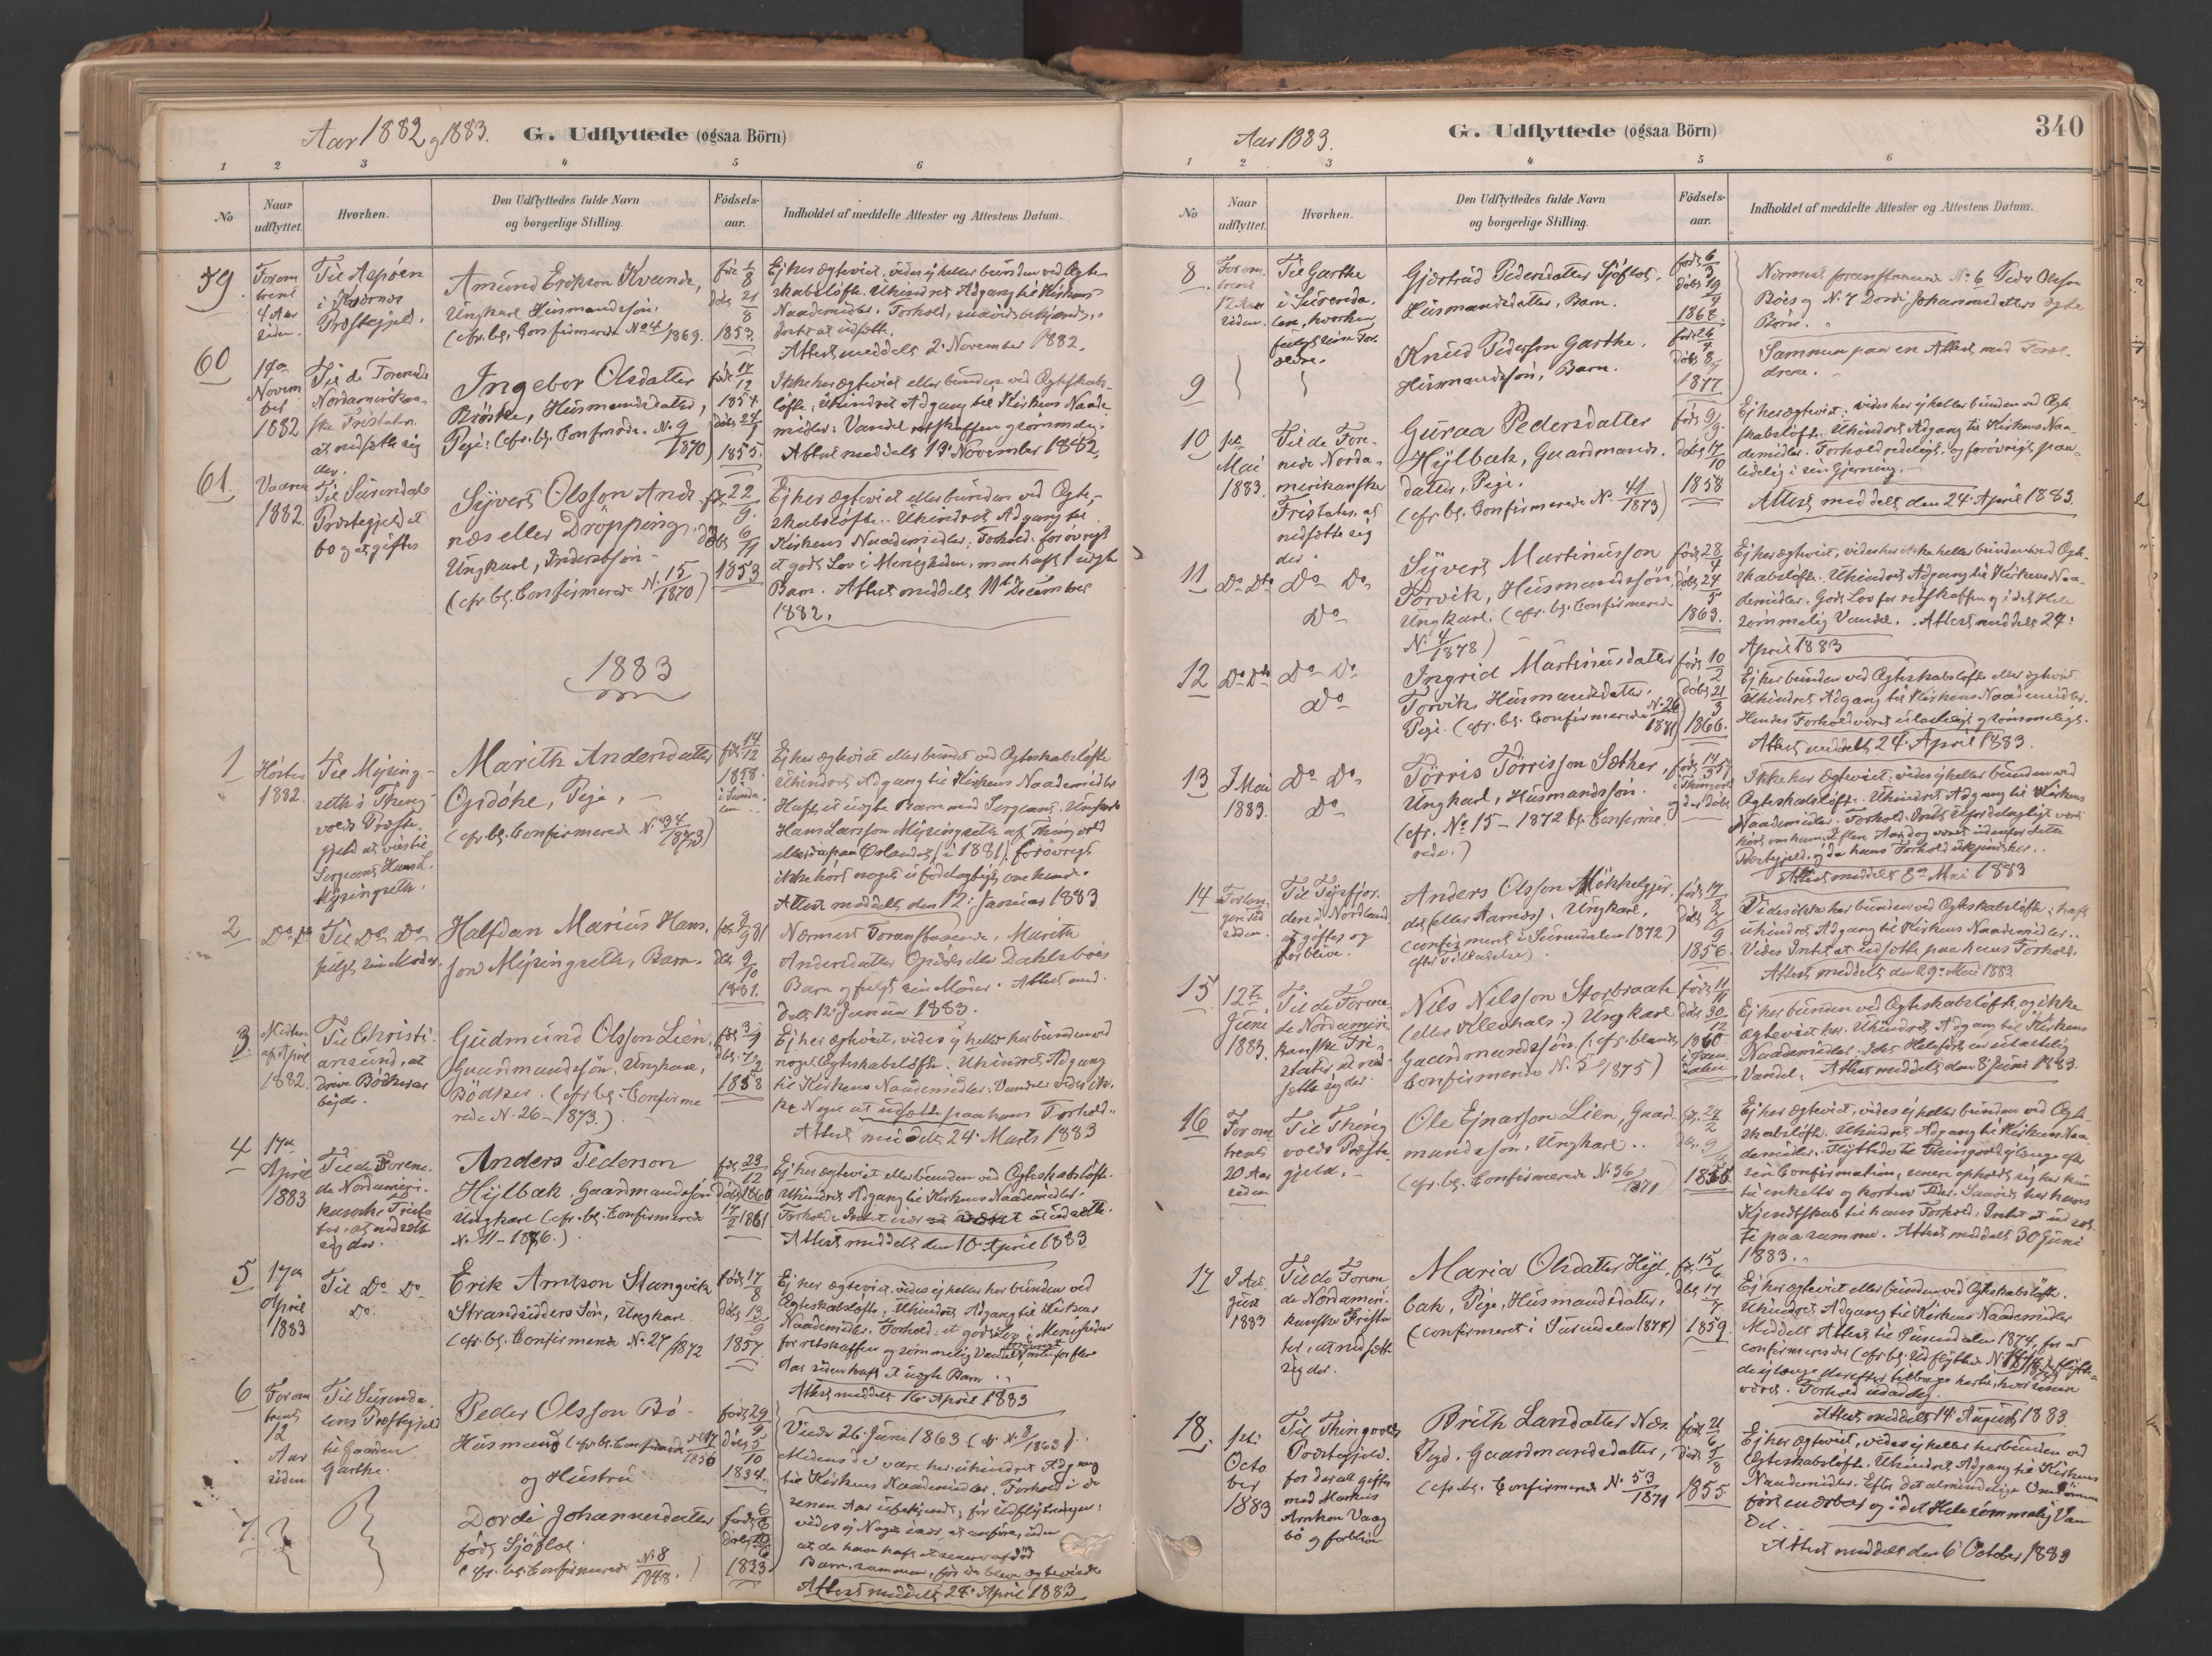 Aar 1882 og 1883.
G. Udflyttede (ogsaa Börn)
1 2 3 4 5 6
No
Naar udflyttet.
Hvorhen.
Den Udflyttedes fulde Navn og borgerlige Stilling.
Födsels-aar.
Indholdet af meddelte Attester og Attestens Datum.
59.
For om
trent
4 Aar
siden.
Til Aspöen
i
Præstegjeld.
Amund Erikson Kvande,
Ungkarl Husmandssön.
(cfr. bl. Confirmerede No 24/1869.
föd 1/8
döbt 21/8
1853.
Ej her ægteviet, vides ej heller bunden ved Ægte-
skabslöfte. Uhindret Adgang til Kirkens
Naademidler. Forhold,
Attest meddelt 2. November 1882.
60
Novem
ber
1882
Til de Forenede
Nordamerikan-
ske Fristater
at nedsætte sig
der.
Ingebor Olsdatter
Bröske, Husmandsdatter,
Pige. (cfr. bl. Confirmerede. No 9/1870)
föd 17/12
1854
döbt 24/1
1855.
Ikke her ægteviet eller bunden ved Ægteskabs-
löfte; Uhindret Adgang til Kirkens Naade-
midler. Vandel retskaffen og sömmelig.
Attest meddelt 19. November 1882.
61
Vaaren
1882.
Til Surendals
Præstegjeld at
bo og at giftes
Syvert Olsson Andr
næs eller Dröpping
Ungkarl, Inderstsön
(cfr. bl. Confirmerede No. 15/1870)
föd. 22/9.
döbt 6/11
1853
Ej her ægteviet eller bunden ved Ægte-
skabslöfte. Uhindret Adgang til
Kirkens Naademidler. Forhold: forövrigt
et godt Lov i Menigheden, men haft 1 uægte
Barn. Attest meddelt 11te December
1882.
1883
1
Hösten
1882.
Til Myring-
seth i Thing
volds Præste
gjeld at vies til
Sergeant Hans L.
Myringseth.
Marith Andersdatter
Opdöhl, Pige,
(cfr. bl. Confirmerede No 34/1873)
föd 14/12
1858.
i Sunda
len
Ej her ægteviet eller bundet ved Ægteskabslöfte
Uhindret Adgang til Kirkens Naademidler
Haft et uægte Barn med Sergeant, Ungkarl
Hans Larsson Myringseth af Thingvold
(i 1881). forövrigt
ikke hört noget ufordelagtigt om hende.
Attest meddelt den 12. Januar 1883
2
Do Do
Til Do Do
fulgt sin Moder.
Halfdan Marius Hans-
son Myringseth, Barn.
döbt 9/10
1881.
Nærmest Foranstaaende, Marith
Andersdatter Opdöls eller Dahlsbois
Barn og fulgt sin Moder. Attest med-
delt 12. Januar 1883.
3
Midten
af April
1882.
Til Christi-
ansund, at
drive Bödkerar
bejde.
Gudmund Olsson Lien,
Gaardmandssön, Ungkarl,
Bödker. (cfr. bl. Confirme
rede N. 26 - 1873.)
1858
Ej her ægteviet, vides ej heller her bunden ved
noget Ægteskabslöfte. Uhindret Adgang
til Kirkens Naademidler. Vandel vides ik-
ke Noget at udsætte paa hans Forhold.
Attest meddelt 24. Marts 1883
4
17de
April
1883
Til de Forene-
de Nordameri-
kanske Frista
ter, at nedsætte
sig der.
Anders Pederson
Hylbak. Gaardmandssön
Ungkarl (cfr. bl. Confirmerede
N. 11 - 1876.)
föd. 23/12
1860
döbt
17/2 1861
Ej her ægteviet eller bunden ved Ægteskabslöfte.
Uhindret Adgang til Kirkens Naademidler.
Attest meddelt den 10. April 1883
5
17de
April
1883
Til Do Do
Do.
Erik Arntson Stangvik
Strandsidders Sön, Ungkarl
(cfr. bl. Confirmerede No. 27/1872
född 17/8
döbt 13/9
1857
Ej her ægteviet, vides ej heller her bunden ved
Ægteskabslöfte. Uhindret Adgang til Kirkens
Naademidler. Forhold: et godt Lov i Menigheden
for retskaffen og sömmelig Vandel forövrigt men for flere
Aar siden haft et uægte Barn.
Attest meddelt 16. April 1883
6
For om
trent
12
Aar
siden
Til Surenda
lens Præstegjeld
til Gaarden
Garthe.
Peder Olsson Bö-
Husmand (cfr. bl. Confirmerede
og Hustru
föd 29/9
döbt 5/10
1834.
Viede 26. Juni 1863 (cfr. N. 8/1863).
Medens de vare her uhindret Adgang
til Kirkens Naademidler. Forhold i de
senere Aar ubekjendt; för Udflytningen
vides ej Noget især at anföre, uden
at de havde haft et senere afdöd
Barn sammen, för de bleve ægteviede
Attest meddelt 24. April 1883
7.
Dordi Johannesdatter
född Sjöflot.
(cfr. bl. Confirmerede No. 8/1848.)
1823
Aar 1883.
G. Udflyttede (ogsaa Börn)
340
1 2 3 4 5 6
No
Naar udflyttet.
Hvorhen.
Den Udflyttedes fulde Navn og borgerlige Stilling.
Födsels-aar.
Indholdet af meddelte Attester og Attestens Datum.
8
For om-
trent
12 Aar
siden.
Til Garthe
i Surenda-
len, hvorhen
fulgt sine For-
ældre.
Gjertrud Pedersdatter Sjöflot,
Husmandsdatter, Barn.
1868.
Nærmest foranstaaende No. 6 Peder Olsson
Böes og N. 7 Dordi Johannesdatters ægte
Börn.
Sammen paa en Attest med Foræl-
drene.
9
Knud Pederson Garthe,
Husmandssön, Barn.
1877
10
Mai
1883.
Til de Fore-
nede Norda-
merikanske
Fristater, at
nedsætte sig
der.
Guraa Pedersdatter
Hylbak, Gaardmands-
datter, Pige.
(cfr. bl. Confirmerede No. 41/1873)
föd 9/9.
döbt 17/10
1858
Ej her ægteviet; vides her ej heller bunden ved Ægte-
skabslöfte. Uhindret Adgang til Kirkens Naa-
demidler. Forhold redeligt, og forövrigt paa-
lidelig i sin Gjerning.
Attest meddelt den 24. April 1883.
11
Do Dto
Do Do
Do
Syvert Martinusson
Torvik, Husmandssön,
Ungkarl. (cfr. bl. Confirmerede
N. 4/1878)
föd 28/4
döbt 24/5
1863.
Ej her ægteviet, vides her ikke heller bunden ved Ægte-
skabslöfte. Uhindret Adgang til Kirkens Naa-
demidler. Godt Lov for retskaffen og i det Hele
sömmelig Vandel. Attest meddelt 24.
April 1883
12
Do Dto
Do Do
Do
Ingrid Martinusdatter
Torvik, Husmandsdatter.
Pige. (cfr. bl. Confirmerede N. 26/1881)
föd 10/2
döbt 21/3
1866.
Ej her bunden ved Ægteskabslöfte eller ægteviet.
Uhindret Adgang til Kirkens Naademidler.
Hendes Forhold været ulasteligt og sömmeligt.
Attest meddelt 24. April 1883.
13
I Mai
1883.
Do Do
Do
Törris Törrisson Sæther,
Ungkarl, Husmandssön.
(cfr. No 15 - 1872 bl. Confirme-
rede.)
Ikke her ægteviet; vides ej heller bunden ved
Ægteskabslöfte. Uhindret Adgang til Kirkens
Naademidler.
Attest meddelt 8de Mai 1883
14
siden.
Til Tysfjor-
den i Nordland
at giftes og
forblive.
Anders Olsson Mökkelgjer-
det (eller Aarnes), Ungkarl,
(confirmeret i Surendalen 1872)
1856.
Vides ikke her bunden ved Ægteskabslöfte; haft
uhindret Adgang til Kirkens Naademidler.
Vides Intet at udsætte paa hans Forhold.
Attest meddelt den 29. Mai 1883.
15
12te
Juni
1883.
Til de Forene-
de Nordameri-
kanske Fri-
stater, at ned-
sætte sig der.
Nils Nilsson Storbraate
Ungkarl
Gaardmandssön (cfr. blandt
Confirmerede N. 5/1875)
föd 11/11
döbt 30/12
1860
Ej her bunden ved Ægteskabslöfte og ikke
ægteviet her. Uhindret Adgang til Kirkens
Naademidler. I det Hele fört en ulastelig
Vandel. Attest meddelt den 8 Juni 1883.
16
For om
trent
20 Aar
siden
Til Thing
volds Præste-
gjeld.
Ole Ejnarson Lien, Gaard-
mandssön, Ungkarl.
(cfr. bl. Confirmerede No 36/1871)
Ej her ægteviet, vides ej heller bunden ved Ægte-
skabslöfte. Uhindret Adgang til Kirkens Naa-
demidler. Flyttede til Thingvold
sin Confirmation, senere opholdt sig her kun
til enkelte og korte Tider. Saavidt her haves
Kjendskab til hans Forhold, Intet at udsæt-
te paa samme. Attest meddelt 30 Juni
1883.
17
I Au-
gust
1883
Til de Foren
de Nordameri-
kanske Frista
ter, at nedsætte
sig der.
Maria Olsdatter Hyl-
bak, Pige, Husmandsdatter,
(confirmeret i Surendalen 1874)
föd. 15/6.
döbt 17/7
1859.
Ej her ægteviet eller bunden ved Ægteskabslöfte.
Uhindret Adgang til Kirkens Naademidler
Meddelt Attest til Surendalen 1874, for at
confirmeres der
derefter tilbage hertil, hvor senere
været. Forhold udadelig.
Attest meddelt 14. August 1883.
18.
Octo
ber
1883
Til Thingvolds
Præstegjeld,
for der at giftes
med Markus
Arnkson Vaag
bö og forblive
Brith Larsdatter Næs,
Pige, Gaardmandsdatter,
(cfr. bl. Confirmerede No. 53/1871
1855.
Ej her ægteviet, vides ej heller her bunden ved
Ægteskabslöfte. Uhindret Adgang til Kirkens
Naademidler. Efter det almindelige Omdömme
fört en ærbar og i det Hele sömmelig Van
del.
Attest meddelt den 6. October 1883